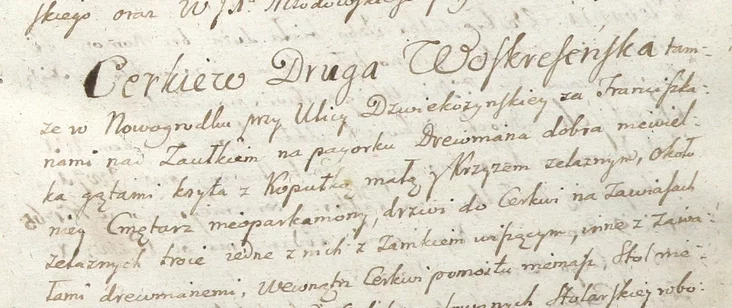 skiego oraz W J
Cerkiew Druga Woskreseńska tam-
że w Nowogrodku przy Ulicy Dzwiekożynskiey za Franciszka-
nami nad Zaułkiem na pagorku Drewniana dobra niewiel-
ka gątami kryta z Kopułką małą y Krzyzem zelaznym, około
niey Cmętarz nieoparkaniony, drzwi do Cerkwi na Zawiasach
zelaznych troie iedne z nich z Zamkiem wiszącym, inne z Zawa-
łami drewnianemi, wewnątrz Cerkwi pomostu niemasz Stol nie-
Stolarskiey robo-